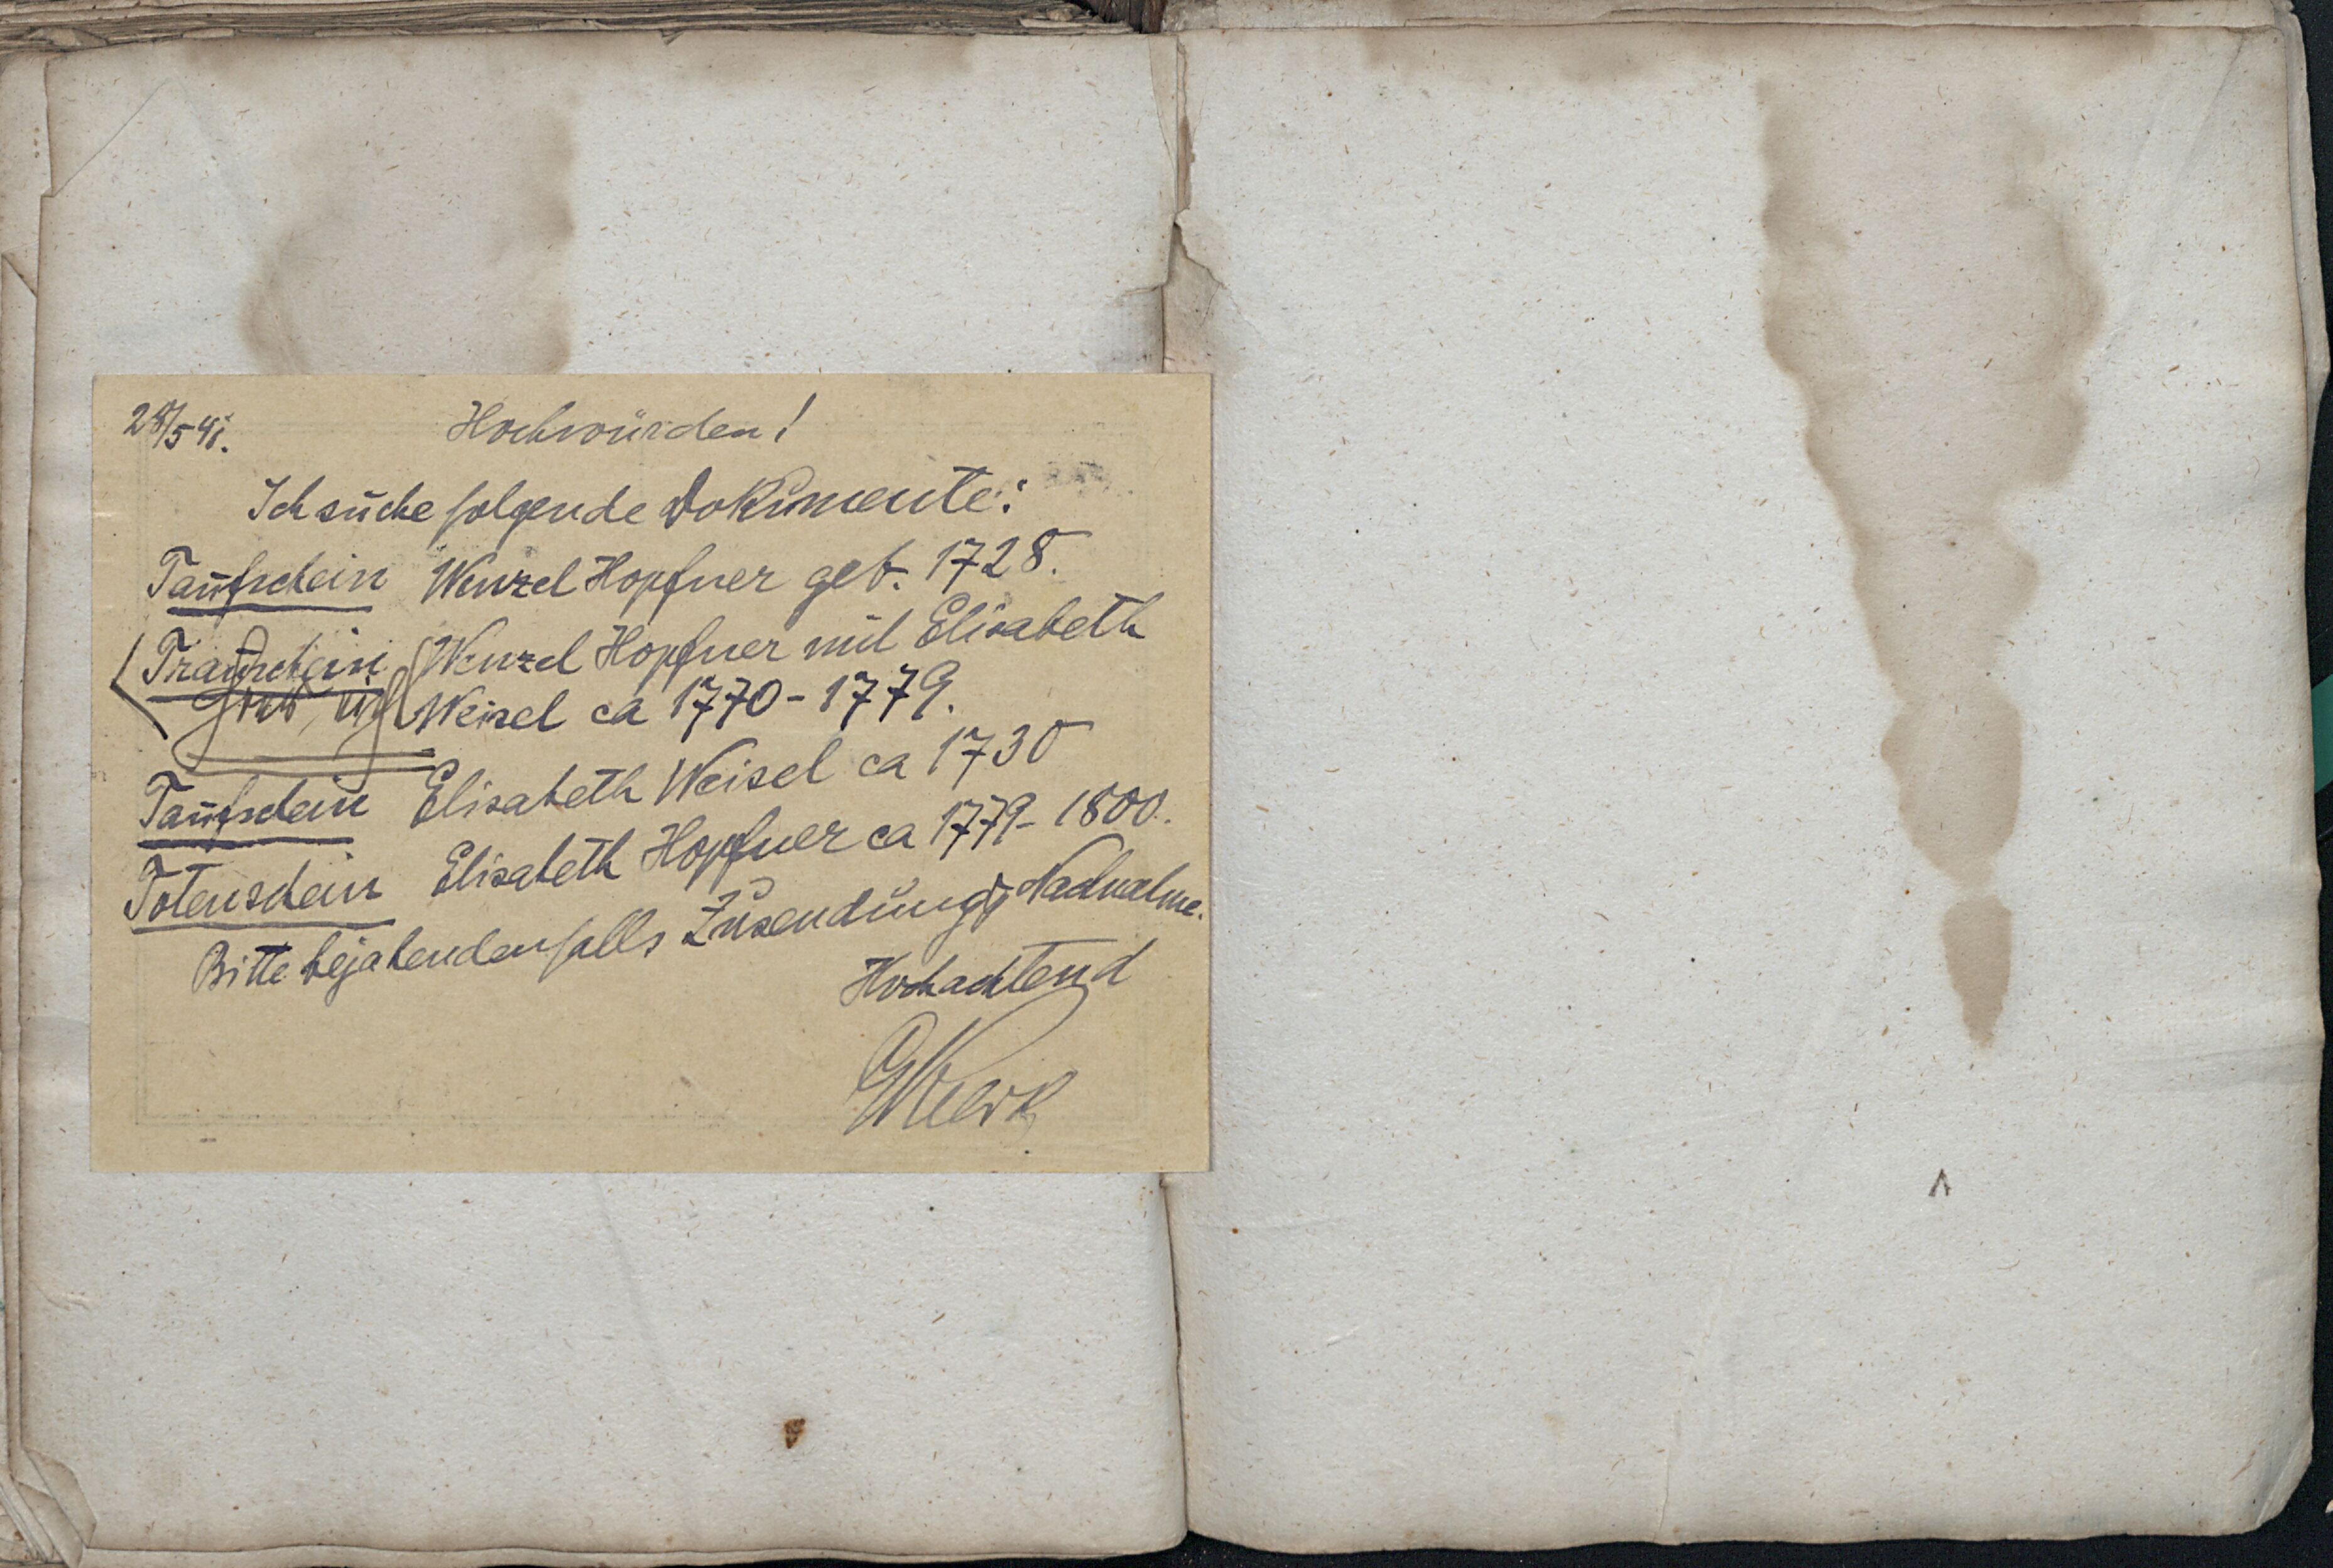 28/5 41. Hochwürden!
Ich suche folgende Dokumente:
Taufschein Wenzel Hopfner geb. 1728.
Trauschein Wenzel Hopfner mit Elisabeth
Weisel ca 1770-1779.
Taufschein Elisabeth Weisel ca 1730
Totenschein Elisabeth Hopfner ca 1779-1800.
Bitte bejahendenfalls Zusendung p Nachnahme.
Hochachtend